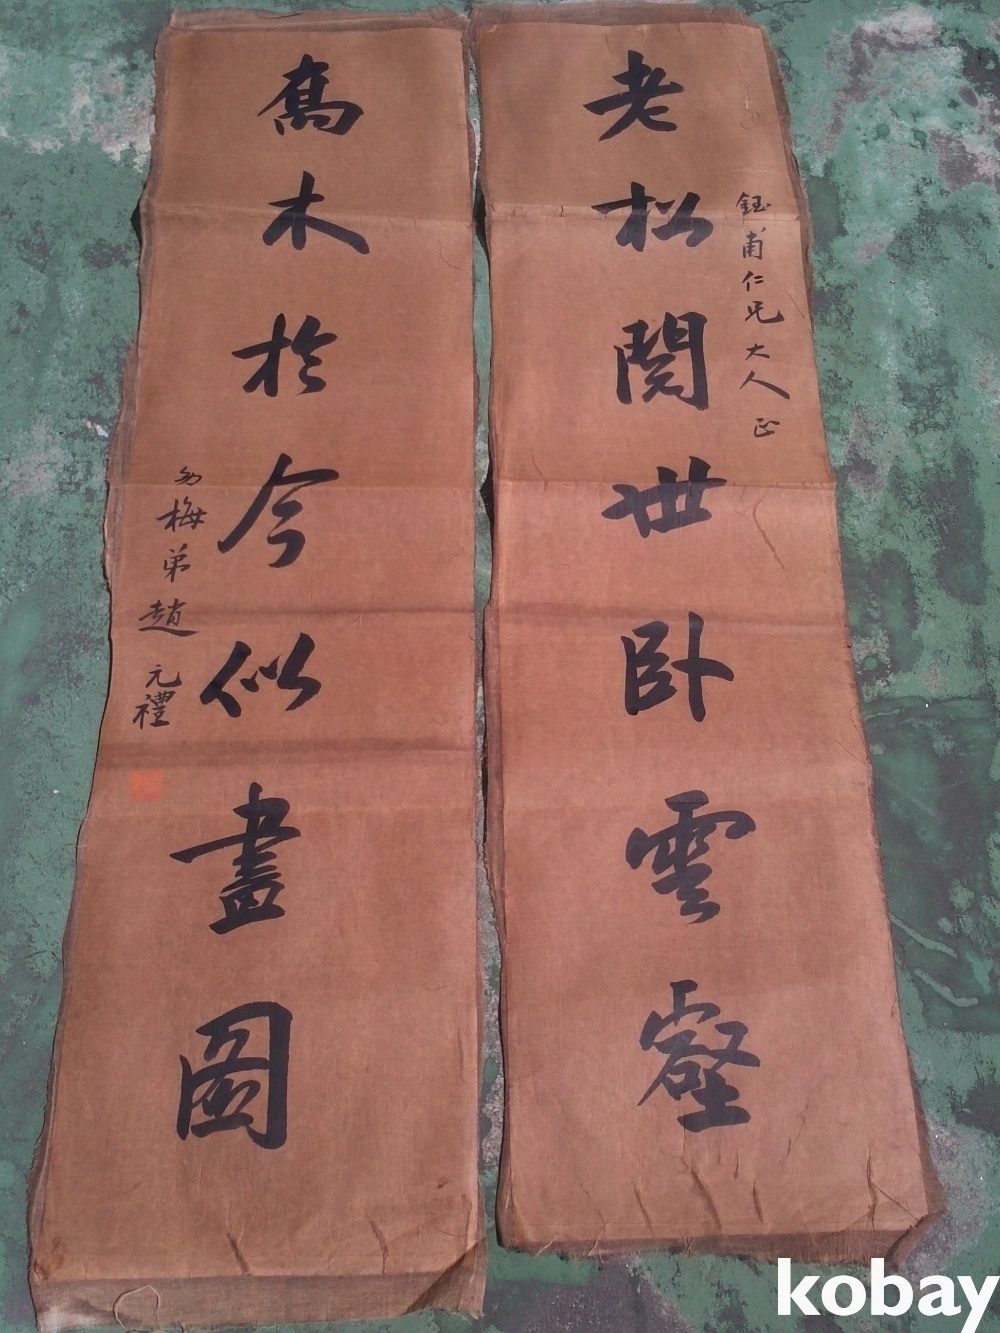 鈺甫仁兄大人正
老松閱世卧雲壑
喬木於今似畫圖
幼梅弟趙元禮
kobay